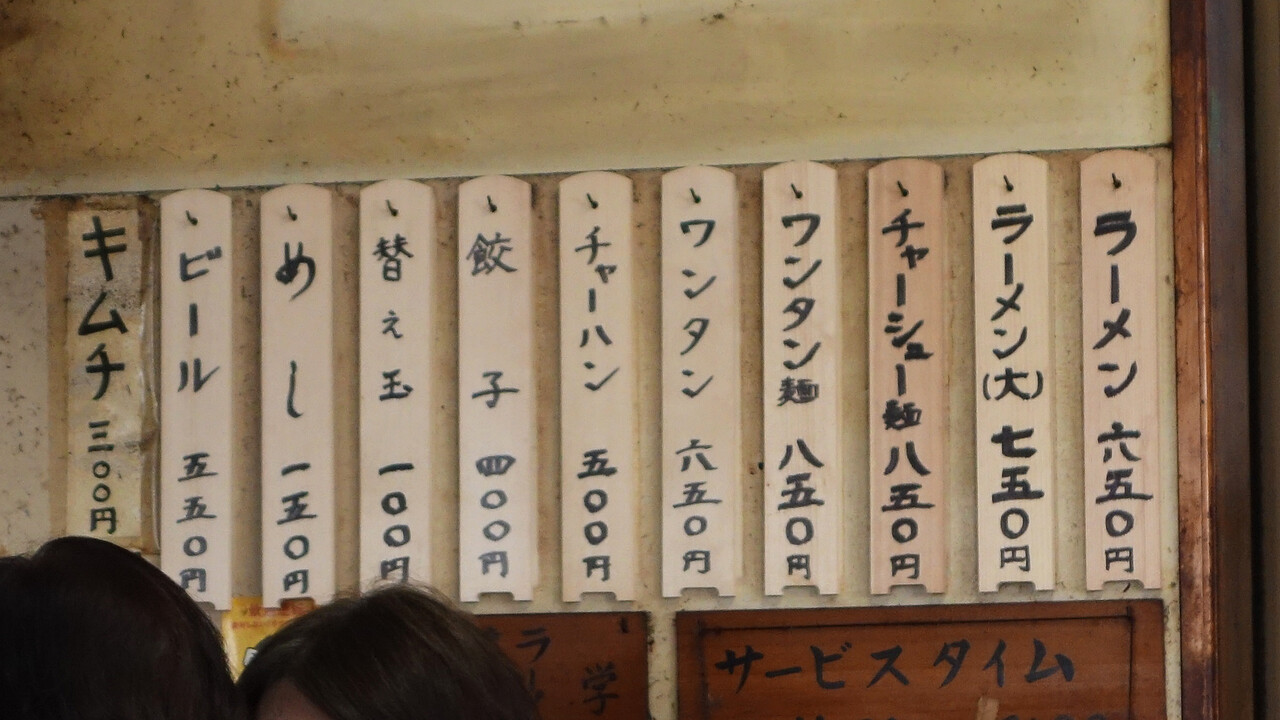 ラーメン 六五〇円
ラーメン(大) 七五〇円
チャーシュー麺 八五〇円
ワンタン麺 八五〇円
ワンタン 六五〇円
チャーハン 五〇〇円
餃子 四〇〇円
替え玉 一〇〇円
めし 一五〇円
ビール 五五〇円
キムチ 三〇〇円
サービスタイム
ラ
学